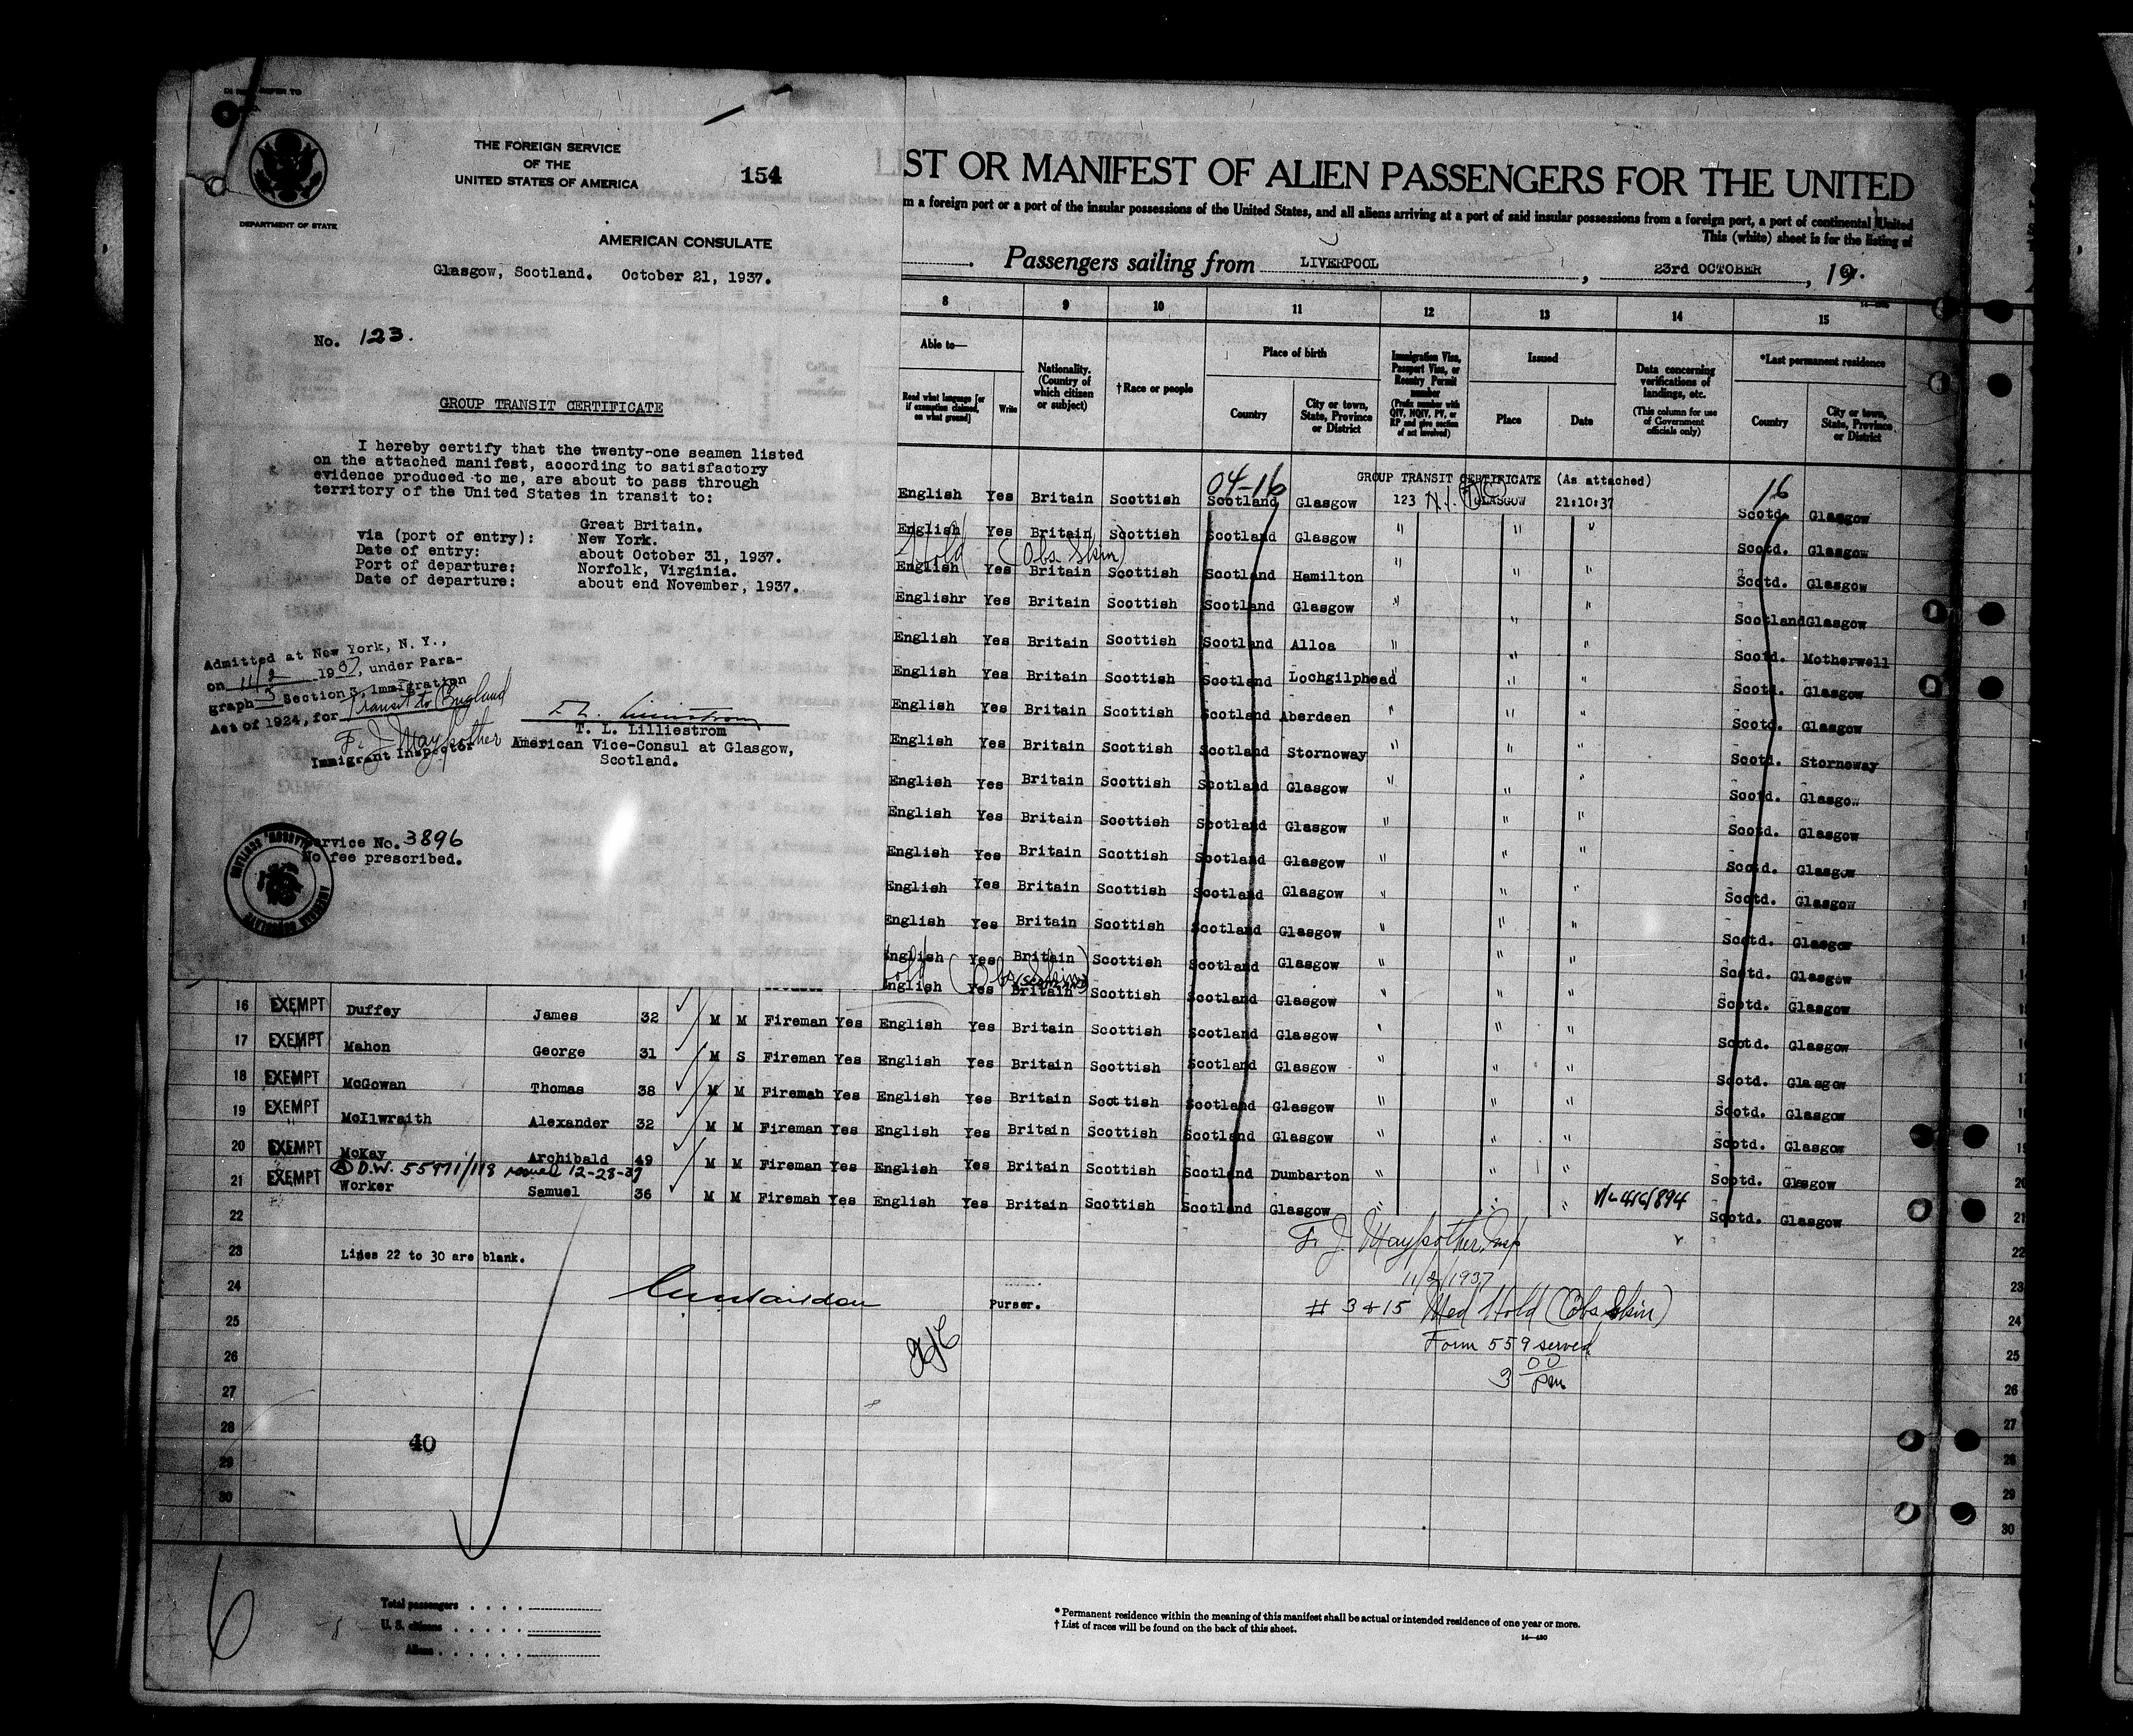 THE FOREIGN SERVICE
OF THE
UNITED STATES OF AMERICA
154
DEPARTMENT OF STATE
AMERICAN CONSULATE
Glasgow, Scotland. October 21, 1937.
No. 123.
GROUP TRANSIT CERTIFICATE
I hereby certify that the twenty-one seamen listed
on the attached manifest, according to satisfactory
evidence produced to me, are about to pass through
territory of the United States in transit to:
Great Britain.
via (port of entry): New York.
Date of entry: about October 31, 1937.
Port of departure: Norfolk, Virginia.
Date of departure: about end November, 1937.
Admitted at New York, N. Y.,
on 11/2 1937, under Para-
graph 3 Section 3, Immigration
Act of 1924, for Transit to England
F. J. Maypother
Immigrant Inspector
T. L. Lilliestrom
American Vice-Consul at Glasgow,
Scotland.
Service No. 3896
No fee prescribed.
LIST OR MANIFEST OF ALIEN PASSENGERS FOR THE UNITED
m a foreign port or a port of the insular possessions of the United States, and all aliens arriving at a port of said insular possessions from a foreign port, a port of continental United
This (white) sheet is for the listing of
Passengers sailing from LIVERPOOL, 23rd OCTOBER, 19
8 9 10 11 12 13 14 15
Able to—
Read what language [or if exemption claimed, on what ground]
Write
Nationality. (Country of which citizen or subject)
†Race or people
Place of birth
Country
City or town, State, Province or District
Immigration Visa, Passport Visa, or Reentry Permit number
(Prefix number with QIV, NQIV, PV, or RP and give section of act involved)
Issued
Place
Date
Data concerning verifications of landings, etc.
(This column for use of Government officials only)
*Last permanent residence
Country
City or town, State, Province or District
04-16
GROUP TRANSIT CERTIFICATE (As attached)
16
English Yes Britain Scottish Scotland Glasgow 123 GLASGOW 21:10:37 Scotd. Glasgow
English Yes Britain Scottish Scotland Glasgow " " " Scotd. Glasgow
Hold (Obs. Skin)
English Yes Britain Scottish Scotland Hamilton " " " Scotd. Glasgow
Englishr Yes Britain Scottish Scotland Glasgow " " " Scotland Glasgow
English Yes Britain Scottish Scotland Alloa " " " Scotd. Motherwell
English Yes Britain Scottish Scotland Lochgilphead " " " Scotd. Glasgow
English Yes Britain Scottish Scotland Aberdeen " " " Scotd. Glasgow
English Yes Britain Scottish Scotland Stornoway " " " Scotd. Stornoway
English Yes Britain Scottish Scotland Glasgow " " " Scotd. Glasgow
English Yes Britain Scottish Scotland Glasgow " " " Scotd. Glasgow
English Yes Britain Scottish Scotland Glasgow " " " Scotd. Glasgow
English Yes Britain Scottish Scotland Glasgow " " " Scotd. Glasgow
English Yes Britain Scottish Scotland Glasgow " " " Scotd. Glasgow
English Yes Britain Scottish Scotland Glasgow " " " Scotd. Glasgow
Hold (Obs Skin)
English Yes Britain Scottish Scotland Glasgow " " " Scotd. Glasgow
16 EXEMPT Duffey James 32 M M Fireman Yes English Yes Britain Scottish Scotland Glasgow " " " Scotd. Glasgow
17 EXEMPT Mahon George 31 M S Fireman Yes English Yes Britain Scottish Scotland Glasgow " " " Scotd. Glasgow
18 EXEMPT McGowan Thomas 38 M M Fireman Yes English Yes Britain Scottish Scotland Glasgow " " " Scotd. Glasgow
19 EXEMPT McIlwraith Alexander 32 M M Fireman Yes English Yes Britain Scottish Scotland Glasgow " " " Scotd. Glasgow
20 EXEMPT McKay Archibald 49 M M Fireman Yes English Yes Britain Scottish Scotland Dumbarton " " " Scotd. Glasgow
D.W. 55971/118 issued 12-28-37
21 EXEMPT Worker Samuel 36 M M Fireman Yes English Yes Britain Scottish Scotland Glasgow " " " Scotd. Glasgow
22
23 Lines 22 to 30 are blank.
F. J. Maypother Insp
11/2/1937
24
Purser.
# 3 & 15 Med Hold (Obs. Skin)
25
Form 559 served
3 00 pm
26
27
28
40
29
30
6
Total passengers
U. S. citizens
Aliens
* Permanent residence within the meaning of this manifest shall be actual or intended residence of one year or more.
† List of races will be found on the back of this sheet.
14—430